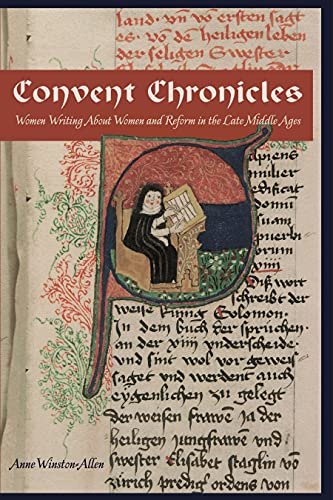 land. vn vo ersten sagt
es vo de heiligen leben
der seligen Swester
Convent Chronicles
Women Writing About Women and Reform in the Late Middle Ages
apiens
mulier
edificat
domu
suam
orum
Diß wort
schreibt der
weise kunig Solomon.
In dem buch der sprüchen.
an der xiiij underscheide.
und sint wol vor gewei
saget und werdent auch
eygenlichen zu gelegt
der weisen frawen ja der
heiligen jungfrawen und
swester Elisabet staglin vo
zürich predig ordens von
Anne Winston-Allen